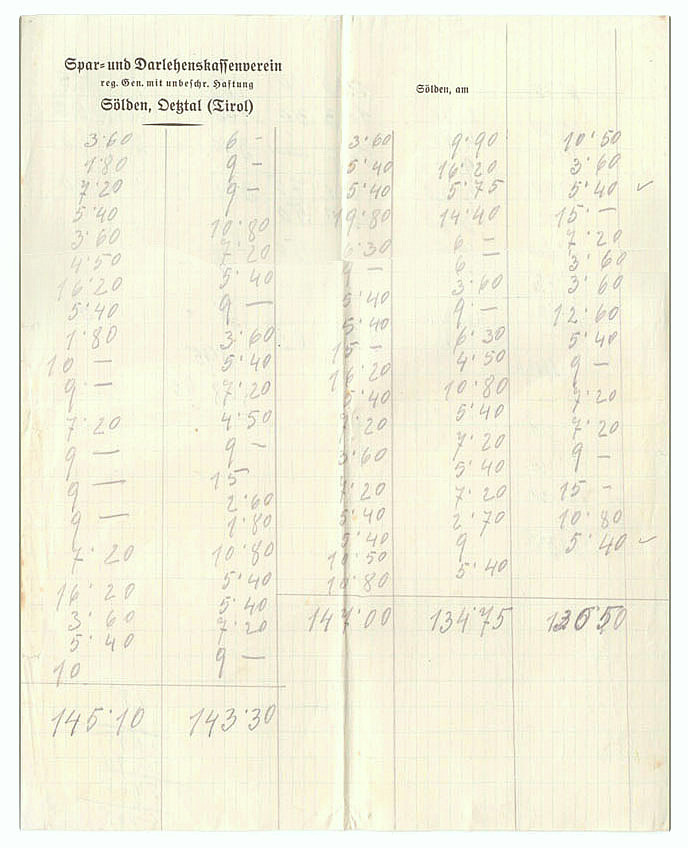 Spar= und Darlehenskassenverein
reg. Gen. mit unbeschr. Haftung
Sölden, Oetztal (Tirol)
Sölden, am
3·60
1·80
7·20
5·40
3·60
4·50
16·20
5·40
1·80
10 —
9 · —
7·20
9 —
9 —
9 · —
7·20
16·20
3·60
5·40
10
145·10
6 —
9 —
9 —
10·80
7·20
5·40
9 —
3·60
5·40
7·20
4·50
9 —
15
2·60
1·80
10·80
5·40
5·40
7·20
9 —
143·30
3·60
5·40
5·40
19·80
6·30
9 —
5·40
5·40
15 —
16·20
5·40
7·20
3·60
7·20
5·40
5·40
10·50
10·80
147·00
9·90
16·20
5·75
14·40
6 —
6 —
3·60
9 · —
6·30
4·50
10·80
5·40
7·20
5·40
7·20
2·70
9
5·40
134·75
10·50
3·60
5·40 ✓
15 · —
7·20
3·60
3·60
12·60
5·40
9 —
7·20
7·20
9 —
15 —
10·80
5·40 ✓
130·50